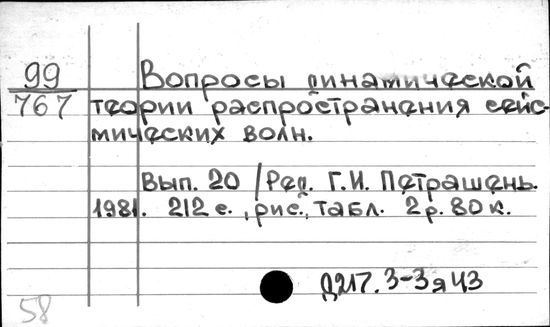 99
767
Вопросы динамической
теории распространения сейс-
мических волн.
Вып. 20 / Ред. Г.И. Петрашень.
1981. 212 с., рис., табл. 2 р. 80 к.
58